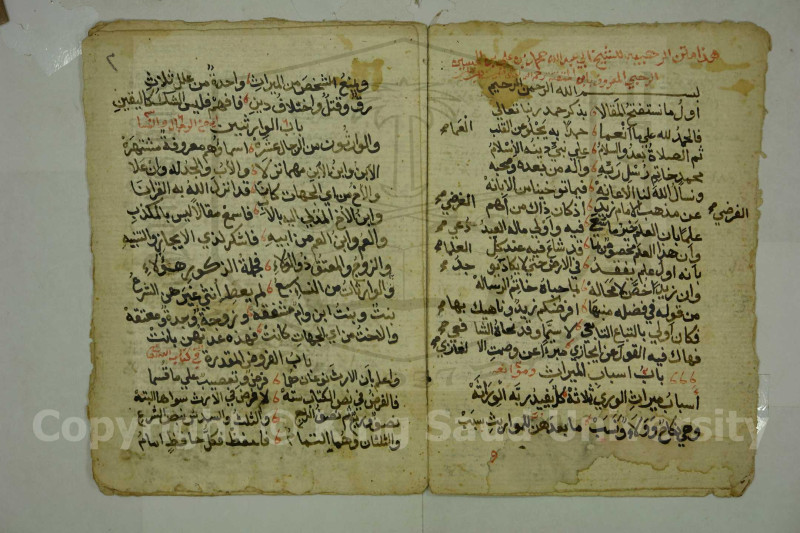 هذا متن الرحبية للشيخ ابي عبد الله محمد بن علي بن الحسين
الرحبي
بسم الله الرحمن الرحيم
اول ما نستفتح المقالا بذكر حمد ربنا تعالى
فالحمد لله على ما انعما حمدا به يجلو عن القلب العما
ثم الصلاة بعد والسلام على نبي دينه الاسلام
محمد خاتم رسل ربه وآله من بعده وصحبه
ونسأل الله لنا الاعانه فيما توخينا من الابانه
عن مذهب الامام زيد الفرضي اذ كان ذاك من اهم الغرض
علما بان العلم خير ما سعي فيه واولى ماله العبد دعي
وان هذا العلم مخصوص بما قد شاع فيه عند كل العلما
بانه اول علم يفقد في الارض حتى لا يكاد يوجد
وان زيدا خص لا محاله بما حباه خاتم الرساله
من قوله في فضله منبها افرضكم زيد وناهيك بها
فكان اولى باتباع التابعي لا سيما وقد نحاه الشافعي
فهاك فيه القول عن ايجاز مبرءا عن وصمت الالغاز
باب اسباب الميراث
اسباب ميراث الورى ثلاثة كل يفيد ربه الوراثة
وهي نكاح وولاء ونسب ما بعدهن للمواريث سبب
٢
ويمنع الشخص من الميراث واحدة من علل ثلاث
رق وقتل واختلاف دين فافهم فليس الشك كاليقين
باب الوارثين
والوارثون من الرجال عشرة اسماؤهم معروفة مشتهرة
الابن وابن الابن مهما نزلا والاب والجد له وان علا
والاخ من اي الجهات كانا قد انزل الله به القرآنا
وابن الاخ المدلي اليه بالاب فاسمع مقالا ليس بالمكذب
والعم وابن العم من ابيه فاشكر لذي الايجاز والتنبيه
والزوج والمعتق ذو الولاء فجملة الذكور هؤلاء
والوارثات من النساء سبع لم يعط انثى غيرهن الشرع
بنت وبنت ابن وام مشفقه وزوجة وجدة ومعتقه
والاخت من اي الجهات كانت فهذه عدتهن بانت
باب الفروض المقدرة في كتاب الله
واعلم بان الارث نوعان هما فرض وتعصيب على ما قسما
فالفرض في نص الكتاب سته لا فرض في الارث سواها البته
نصف وربع ثم نصف الربع والثلث والسدس بنص الشرع
والثلثان وهما التمام فاحفظ فكل حافظ امام
Copyright © King Saud University